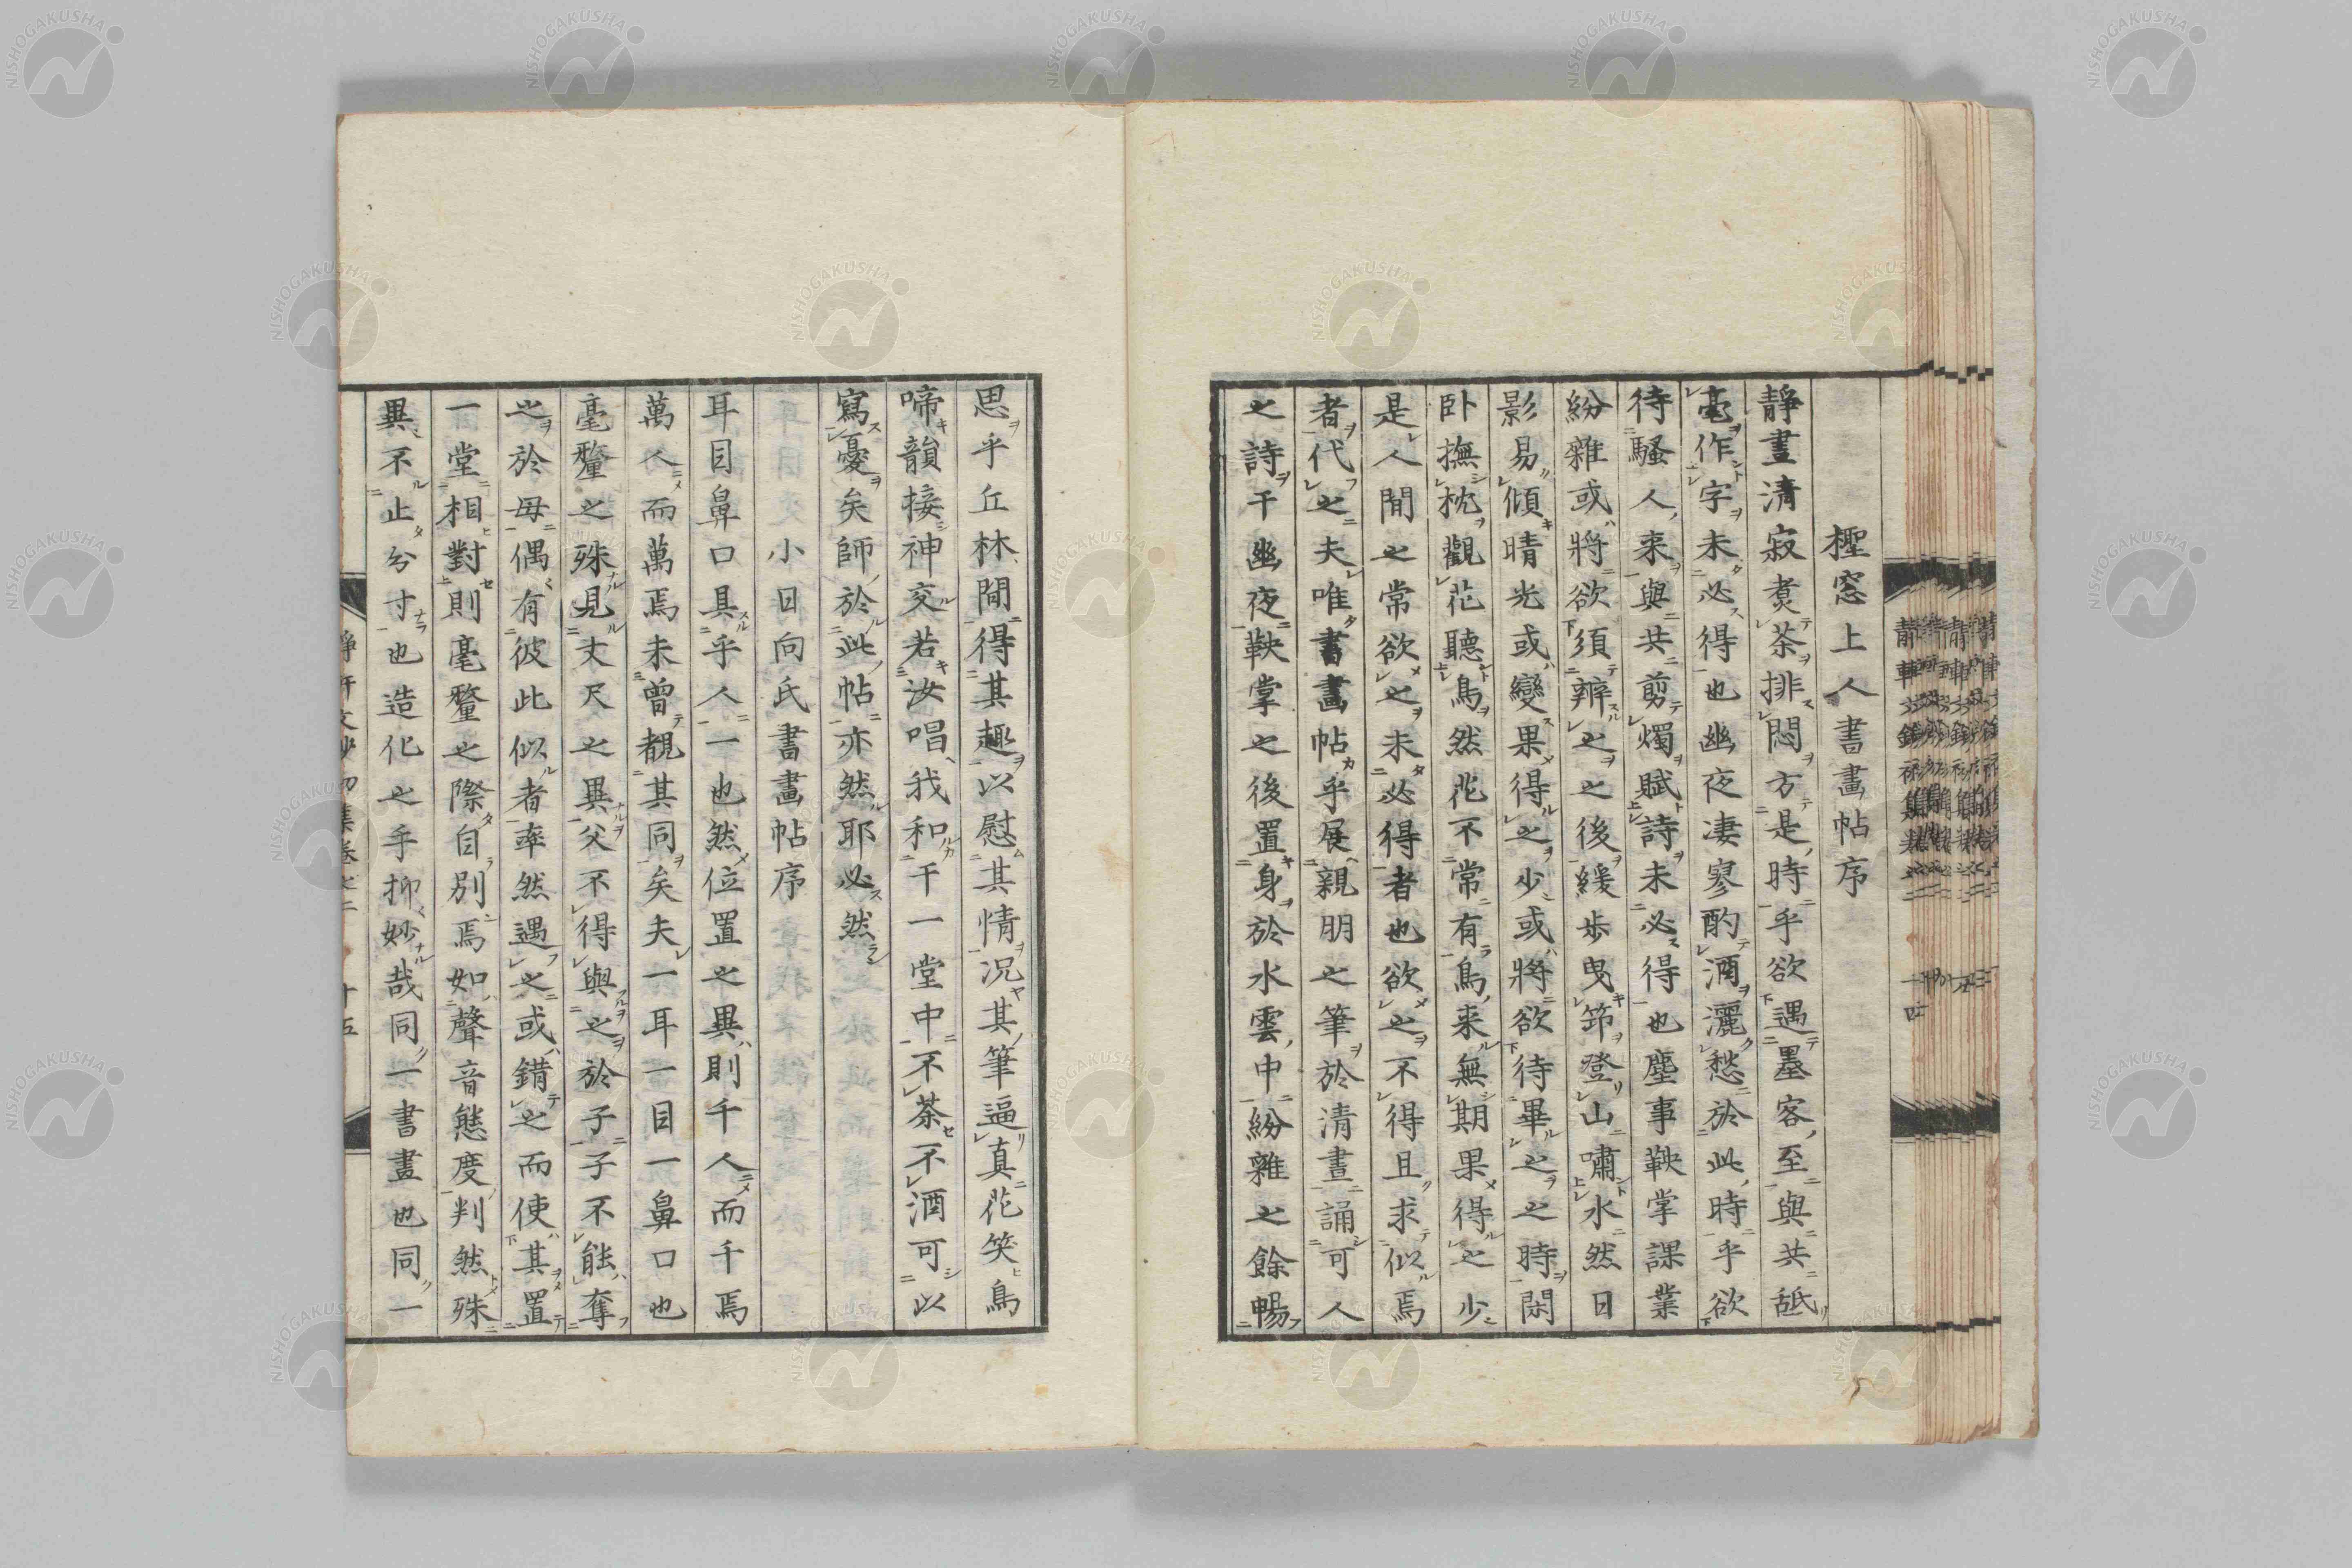 檉窓上人書畫帖序
靜晝清寂煮茶排悶方是時乎欲遇墨客至與共舐
毫作字未必得也幽夜凄寥酌酒灑愁於此時乎欲
待騷人來與共剪燭賦詩未必得也塵事鞅掌課業
紛雜或將欲須辨之之後緩步曳筇登山嘯水然日
影易傾晴光或變果得之少或將欲待畢之之時閑
卧撫枕觀花聽鳥然花不常有鳥來無期果得之少
是人間之常欲之未必得者也欲之不得且求似焉
者代之夫唯書畫帖乎展親朋之筆於清晝誦可人
之詩于幽夜鞅掌之後置身於水雲中紛雜之餘暢
思乎丘林間得其趣以慰其情况其筆逼真花笑鳥
啼韻接神交若汝唱我和于一堂中不茶不酒可以
寫憂矣師於此帖亦然耶必然
小日向氏書畫帖序
耳目鼻口具乎人一也然位置之異則千人而千焉
萬人而萬焉未曾覩其同矣夫一耳一目一鼻口也
毫釐之殊見丈尺之異父不得與之於子子不能奪
之於母偶有彼此似者率然遇之或錯之而使其置
一堂相對則毫釐之際自別焉如聲音態度判然殊
異不止分寸也造化之乎抑妙哉同一書畫也同一
靜軒文鈔初集卷之二 十五
NISHOGAKUSHA